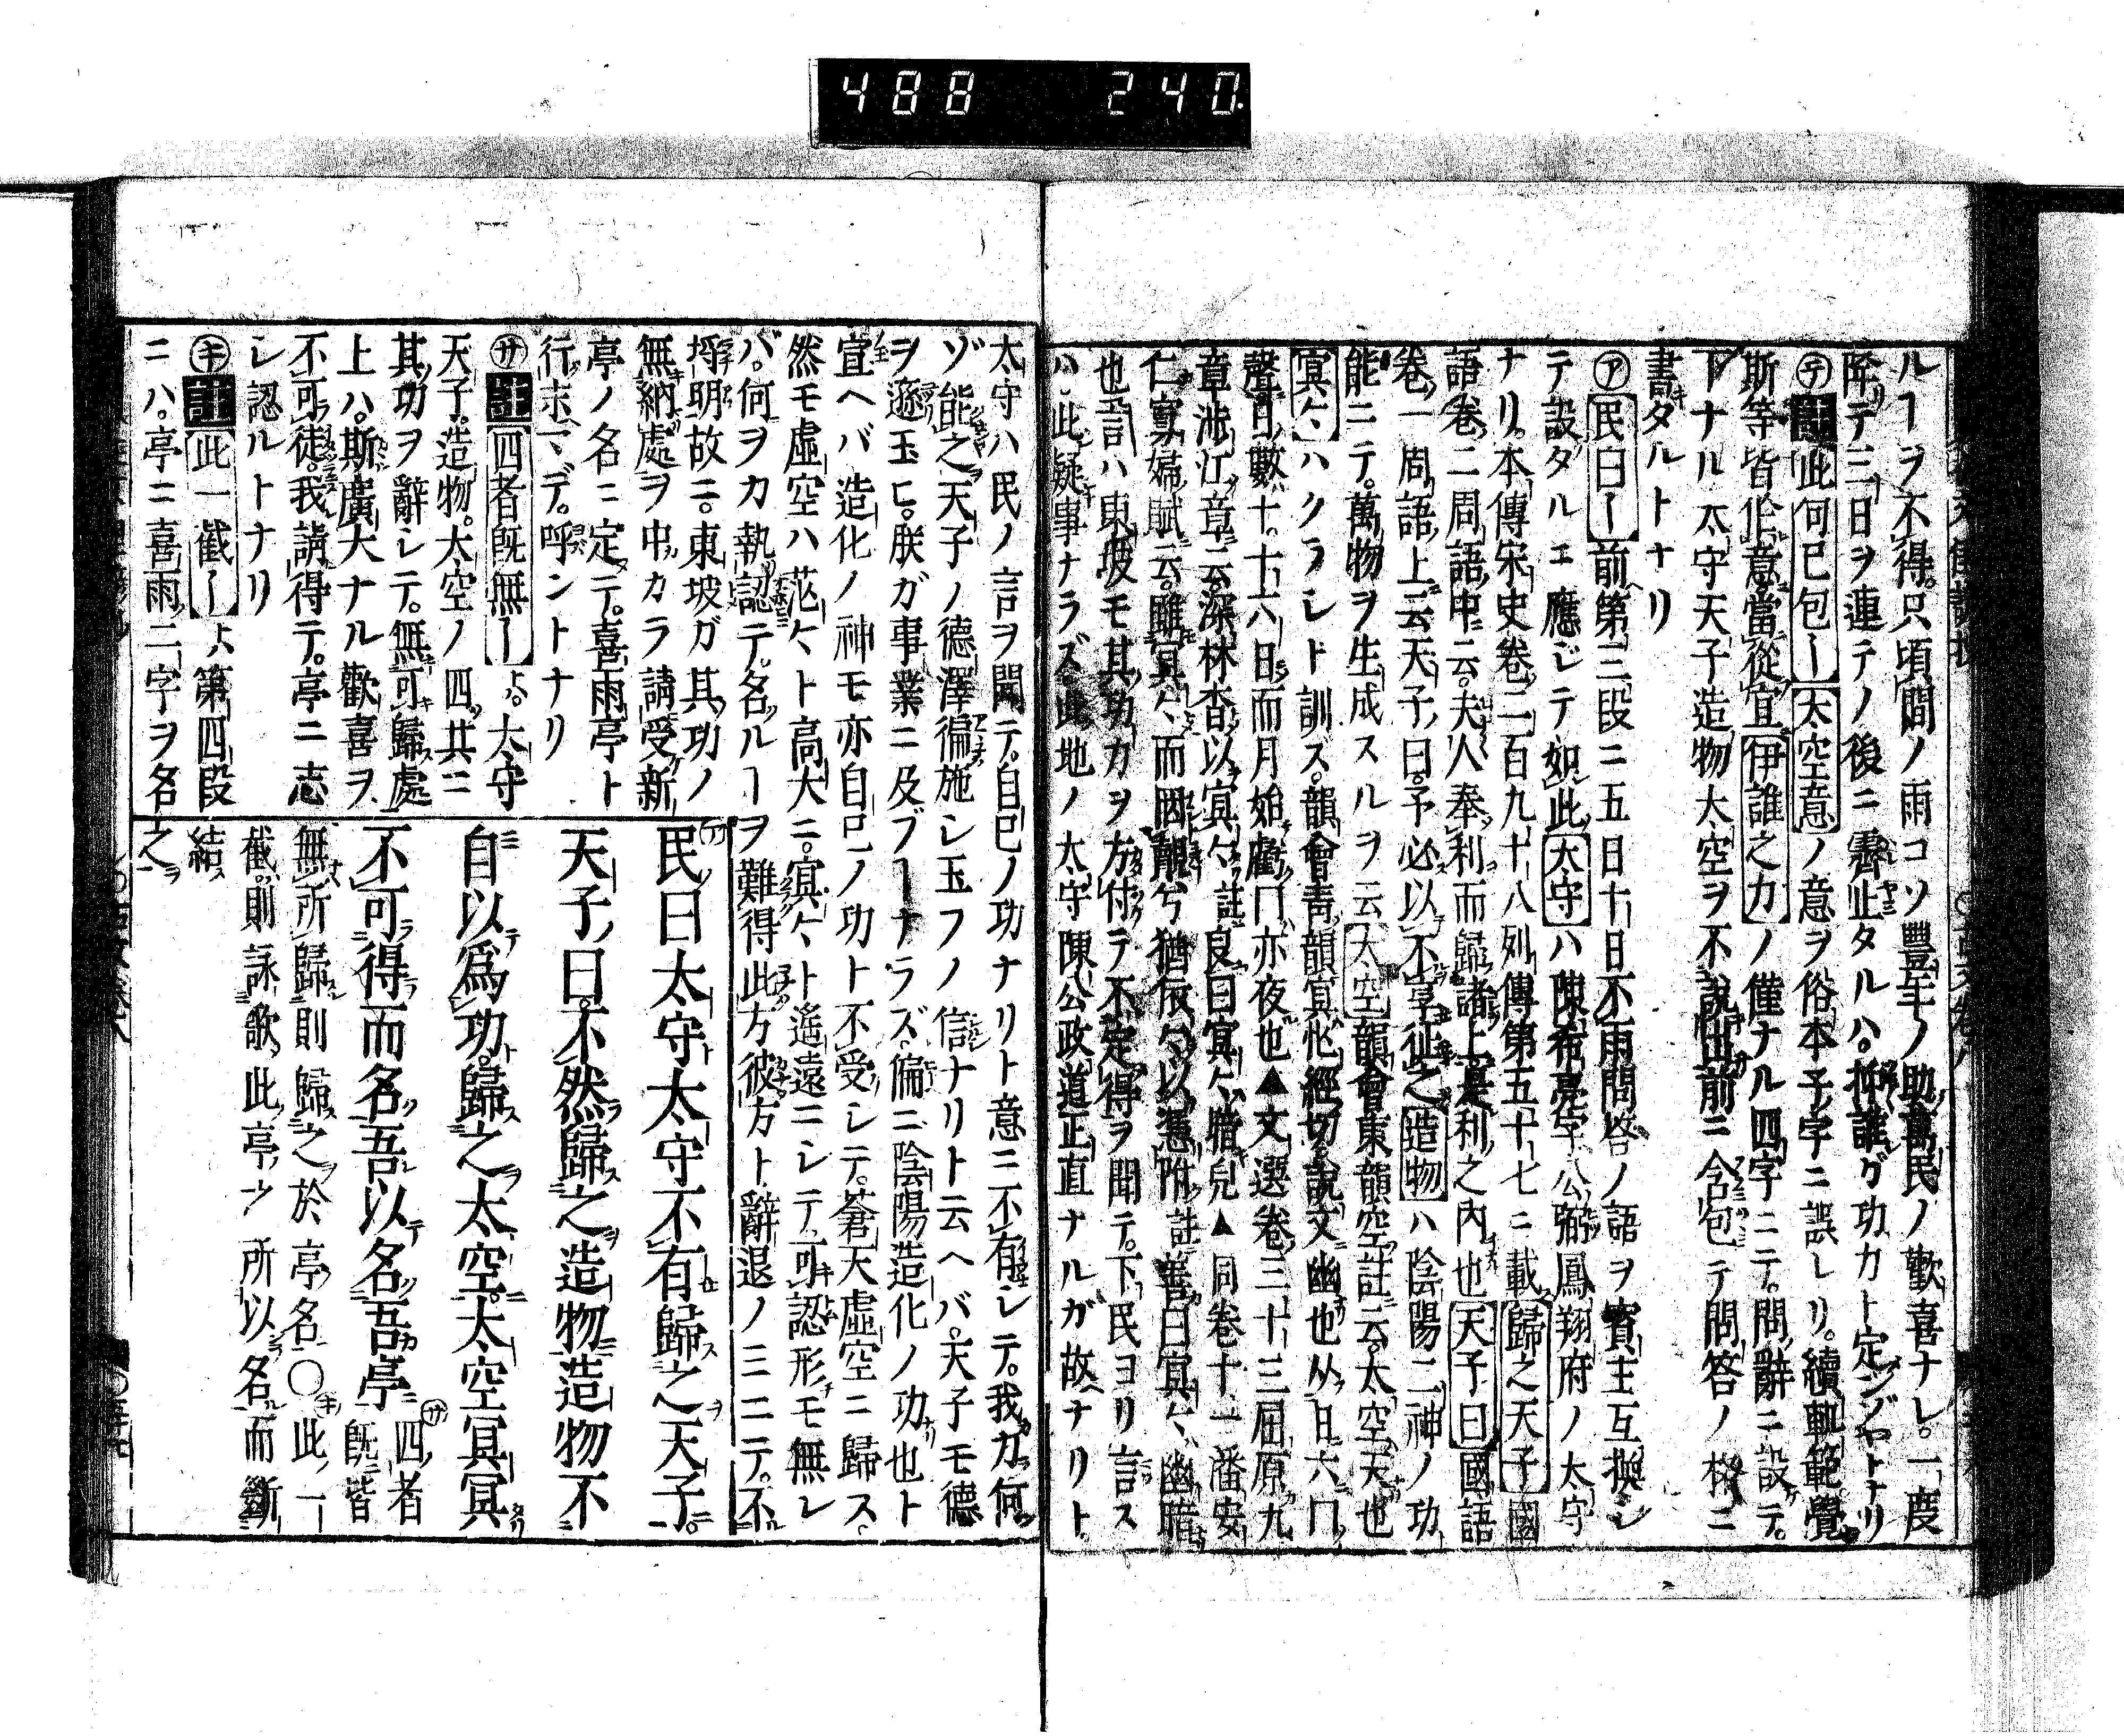 488 240
ルヿヲ不得只頃間ノ雨コソ豐年ノ助萬民ノ歡喜ナレ。一度
降テ三日ヲ連テノ後ニ霽止タルハ。抑誰ガ功カト定ンゾヤトナリ
㋢註此何已包ー太空意ノ意ヲ俗本予字ニ誤レリ。續軌範覺
斯等皆作意當從宜伊誰之力ノ僅ナル四字ニテ。問辭ニ設テ。
下ナル太守天子造物太空ヲ不說出前ニ含包テ問答ノ格ニ
書タルトナリ
㋐民曰ー前第三段ニ五日十日不雨問答ノ語ヲ賓主互換シ
テ設タルヱ應ジテ如此太守ハ陳希亮字公弼鳳翔府ノ太守
ナリ。本傳宋史卷二百九十八列傳第五十七ニ載歸之天子國
語卷二周語中ニ云。夫人奉利而歸諸上是利之內也天子曰國語
卷一周語上云天子曰。予必以不享征之造物ハ陰陽二神ノ功
能ニテ。萬物ヲ生成スルヲ云太空韻會東韻空註云。太空天也
冥々ハクラシト訓ズ。韻會靑韻冥忙經切說文幽也从日六冂
聲日數十。十六日而月始虧冂亦夜也▲文選卷三十三屈原九
章涉江章云深林杳以冥々註良曰冥々暗皃▲同卷十一潘安
仁寡婦賦云。雖冥々而罔覿兮猶依々以憑附註善曰冥々幽暗
也言ハ東坡モ其功カヲ方付テ不定得ヲ聞テ。下民ヨリ言ス
ハ此疑事ナラズ此地ノ太守陳公政道正直ナルガ故ナリト
太守ハ民ノ言ヲ聞テ。自已ノ功ナリト意ニ不有シテ。我カ何
ゾ能之天子ノ德澤徧施シ玉フノ信ナリト云ヘバ。天子モ德
ヲ遜玉ヒ。朕ガ事業ニ及ブヿナラズ。偏ニ陰陽造化ノ功也ト
宣ヘバ造化ノ神モ亦自已ノ功ト不受シテ。蒼天虛空ニ歸ス
然モ虛空ハ茫々ト高大ニ。冥々ト遙遠ニシテ可認形モ無レ
バ。何ヲカ執認テ。名ルヿヲ難得此方彼方ト辭退ノミニテ。不
埒明故ニ。東坡ガ其功ノ
無納處ヲ中カラ請受新
亭ノ名ニ定テ。喜雨亭ト
行末マデ。呼ントナリ
㋚註四者既無ーハ。太守
天子。造物。太空ノ四共ニ
其功ヲ辭シテ。無可歸處
上ハ。斯廣大ナル歡喜ヲ
不可徒。我請得テ。亭ニ志
シ認ルトナリ
㋖註此一截ーハ第四段
ニハ。亭ニ喜雨二字ヲ名
㋐民曰太守太守不有歸之天子。
天子曰。不然歸之造物造物不
自以爲功。歸之太空。太空冥冥
不可得而名吾以名吾亭㋚四者既皆
無所歸則歸之於亭名○㋖此一
截則詠歌此亭之所以名而斷
結之